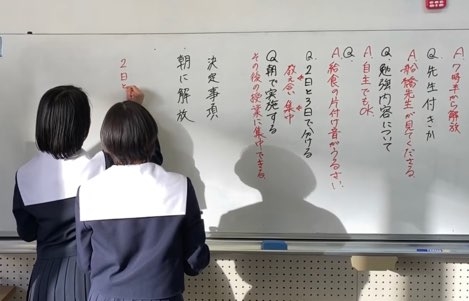 A. 7時半から解放
Q. 先生付きか
A. 船橋先生が見てくださる
Q. 勉強内容について
A 自主でもOK
Q.
A. 給食の片付け音がうるさい
Q. 2日と3日で分ける
教え合い 集中
Q 朝で実施する
その後の授業に集中できる
決定事項
朝に解放
2日と